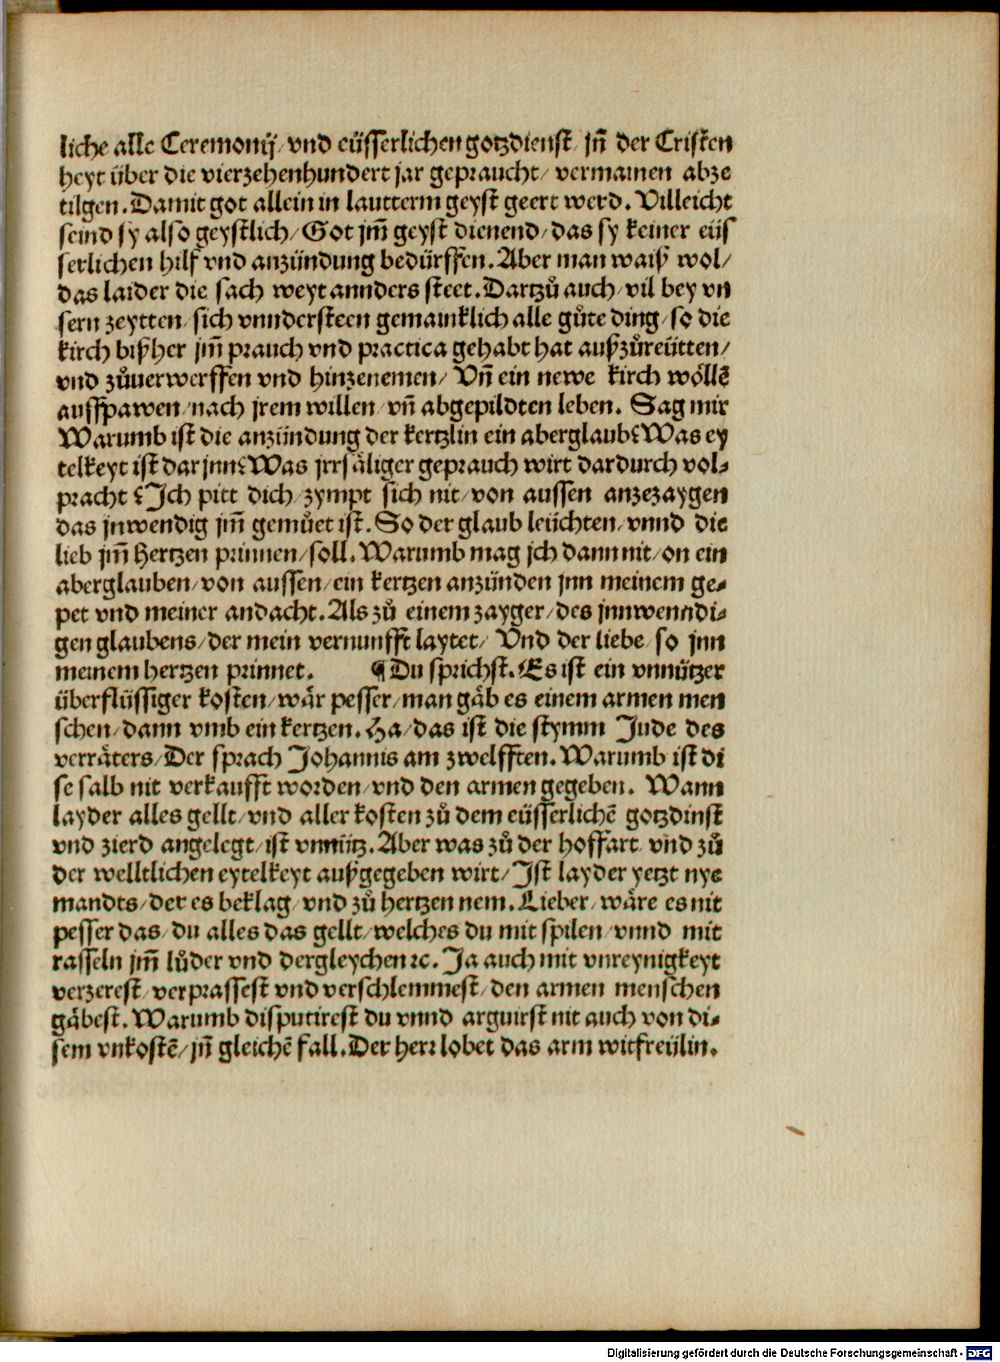 liche alle Ceremonij/ vnd eüsserlichen gotzdienst/ jñ der Cristen
heyt über die vierzehenhundert jar gepraucht/ vermainen abze
tilgen. Damit got allein in lautterm geyst geert werd. Villeicht
seind sy also geystlich/ Got jm̃ geyst dienend/ das sy keiner eüs
serlichen hilf vnd anzündung bedürffen. Aber man waiß wol/
das laider die sach weyt annders steet. Dartzů auch/ vil bey vn
sern zeytten/ sich vnndersteen gemainklich alle gůte ding/ so die
kirch bißher jm̃ prauch vnd practica gehabt hat außzůreütten/
vnd zůuerwerffen vnd hinzenemen/ Vñ ein newe kirch wöllẽ
ausspawen/ nach jrem willen/ vñ abgepildten leben. Sag mir
Warumb ist die anzündung der kertzlin ein aberglaub? Was ey
telkeyt ist dar jnn? Was jrrsäliger geprauch wirt dardurch vol-
pracht? Ich pitt dich/ zympt sich nit/ von aussen anzezaygen
das jnwendig jm̃ gemůet ist. So der glaub leüchten/ vnnd die
lieb jm̃ Hertzen prinnen/ soll. Warumb mag jch dann nit/ on ein
aberglauben/ von aussen/ ein kertzen anzünden jnn meinem ge-
pet vnd meiner andacht. Als zů einem zayger/ des jnnwenndi-
gen glaubens/ der mein vernunfft laytet/ Vnd der liebe/ so jnn
meinem hertzen prinnet. ¶ Du sprichst. Es ist ein vnnützer
überflüssiger kosten/ wär pesser/ man gäb es einem armen men
schen/ dann vmb ein kertzen. Ha/ das ist die stymm Jude des
verräters/ Der sprach Johannis am zwelfften. Warumb ist di
se salb nit verkaufft worden/ vnd den armen gegeben. Wann
layder alles gellt/ vnd aller kosten zů dem eüsserlichẽ gotzdinst
vnd zierd angelegt/ ist vnnütz. Aber was zů der hoffart/ vnd zů
der welltlichen eytelkeyt außgegeben wirt/ Ist layder yetzt nye
mandts/ der es beklag/ vnd zů hertzen nem. Lieber/ wäre es nit
pesser das/ du alles das gellt/ welches du mit spilen/ vnnd mit
rasseln jm̃ lůder vnd dergleychen ꝛc. Ja auch mit vnreynigkeyt
verzerest/ verprassest vnd verschlemmest/ den armen menschen
gäbest. Warumb disputirest du vnnd arguirst nit auch von di-
sem vnkostẽ/ jñ gleichẽ fall. Der herr lobet das arm witfreülin.
Digitalisierung gefördert durch die Deutsche Forschungsgemeinschaft - DFG